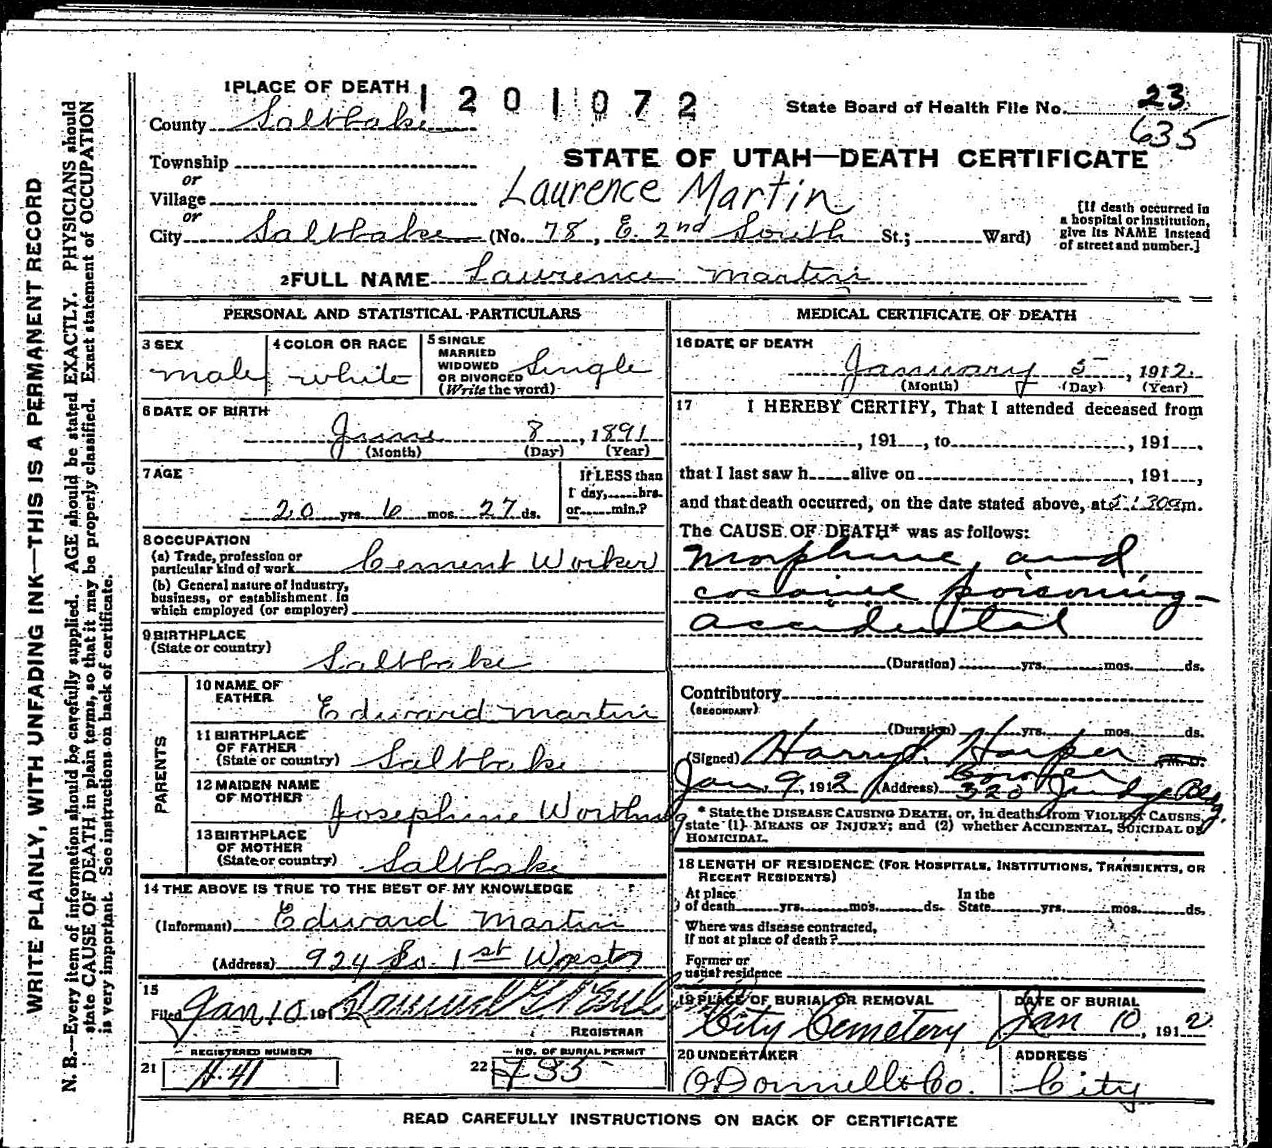 1 PLACE OF DEATH
1201072
State Board of Health File No. 23
635
County Saltlake
STATE OF UTAH—DEATH CERTIFICATE
Township
or
Village
Laurence Martin
or
City Saltlake (No. 78, E. 2nd South St.; Ward)
[If death occurred in
a hospital or institution,
give its NAME instead
of street and number.]
2 FULL NAME Lawrence Martin
PERSONAL AND STATISTICAL PARTICULARS
3 SEX
male
4 COLOR OR RACE
white
5 SINGLE
MARRIED
WIDOWED
OR DIVORCED
(Write the word)
Single
6 DATE OF BIRTH
June 8, 1891
(Month) (Day) (Year)
7 AGE
20 yrs. 6 mos. 27 ds.
If LESS than
1 day, hrs.
or min.?
8 OCCUPATION
(a) Trade, profession or
particular kind of work Cement Worker
(b) General nature of industry,
business, or establishment in
which employed (or employer)
9 BIRTHPLACE
(State or country)
Saltlake
PARENTS
10 NAME OF
FATHER
Edward Martin
11 BIRTHPLACE
OF FATHER
(State or country) Saltlake
12 MAIDEN NAME
OF MOTHER
Josephine Worthing
13 BIRTHPLACE
OF MOTHER
(State or country) Saltlake
14 THE ABOVE IS TRUE TO THE BEST OF MY KNOWLEDGE
(Informant) Edward Martin
(Address) 924 So. 1st West
15
Filed Jan 10 191
REGISTRAR
REGISTERED NUMBER
21 H.41
NO. OF BURIAL PERMIT
22 735
MEDICAL CERTIFICATE OF DEATH
16 DATE OF DEATH
January 5, 1912.
(Month) (Day) (Year)
17 I HEREBY CERTIFY, That I attended deceased from
, 191 , to , 191 ,
that I last saw h alive on , 191 ,
and that death occurred, on the date stated above, at 5:30am.
The CAUSE OF DEATH* was as follows:
Morphine and
cocaine poisoning—
accidental
(Duration) yrs. mos. ds.
Contributory
(SECONDARY)
(Duration) yrs. mos. ds.
(Signed) Harry S. Harper M.D.
Coroner
Jan. 9, 1912 (Address) 320 Judge Bldg.
* State the DISEASE CAUSING DEATH, or, in deaths from VIOLENT CAUSES,
state (1) MEANS OF INJURY; and (2) whether ACCIDENTAL, SUICIDAL or
HOMICIDAL.
18 LENGTH OF RESIDENCE (FOR HOSPITALS, INSTITUTIONS, TRANSIENTS, OR
RECENT RESIDENTS)
At place
of death yrs. mos. ds.
In the
State yrs. mos. ds.
Where was disease contracted,
if not at place of death?
Former or
usual residence
19 PLACE OF BURIAL OR REMOVAL
City Cemetery
DATE OF BURIAL
Jan 10, 1912
20 UNDERTAKER
O'Donnell & Co.
ADDRESS
City
READ CAREFULLY INSTRUCTIONS ON BACK OF CERTIFICATE
WRITE PLAINLY, WITH UNFADING INK—THIS IS A PERMANENT RECORD
N. B.—Every item of information should be carefully supplied. AGE should be stated EXACTLY. PHYSICIANS should
state CAUSE OF DEATH in plain terms, so that it may be properly classified. Exact statement of OCCUPATION
is very important. See instructions on back of certificate.